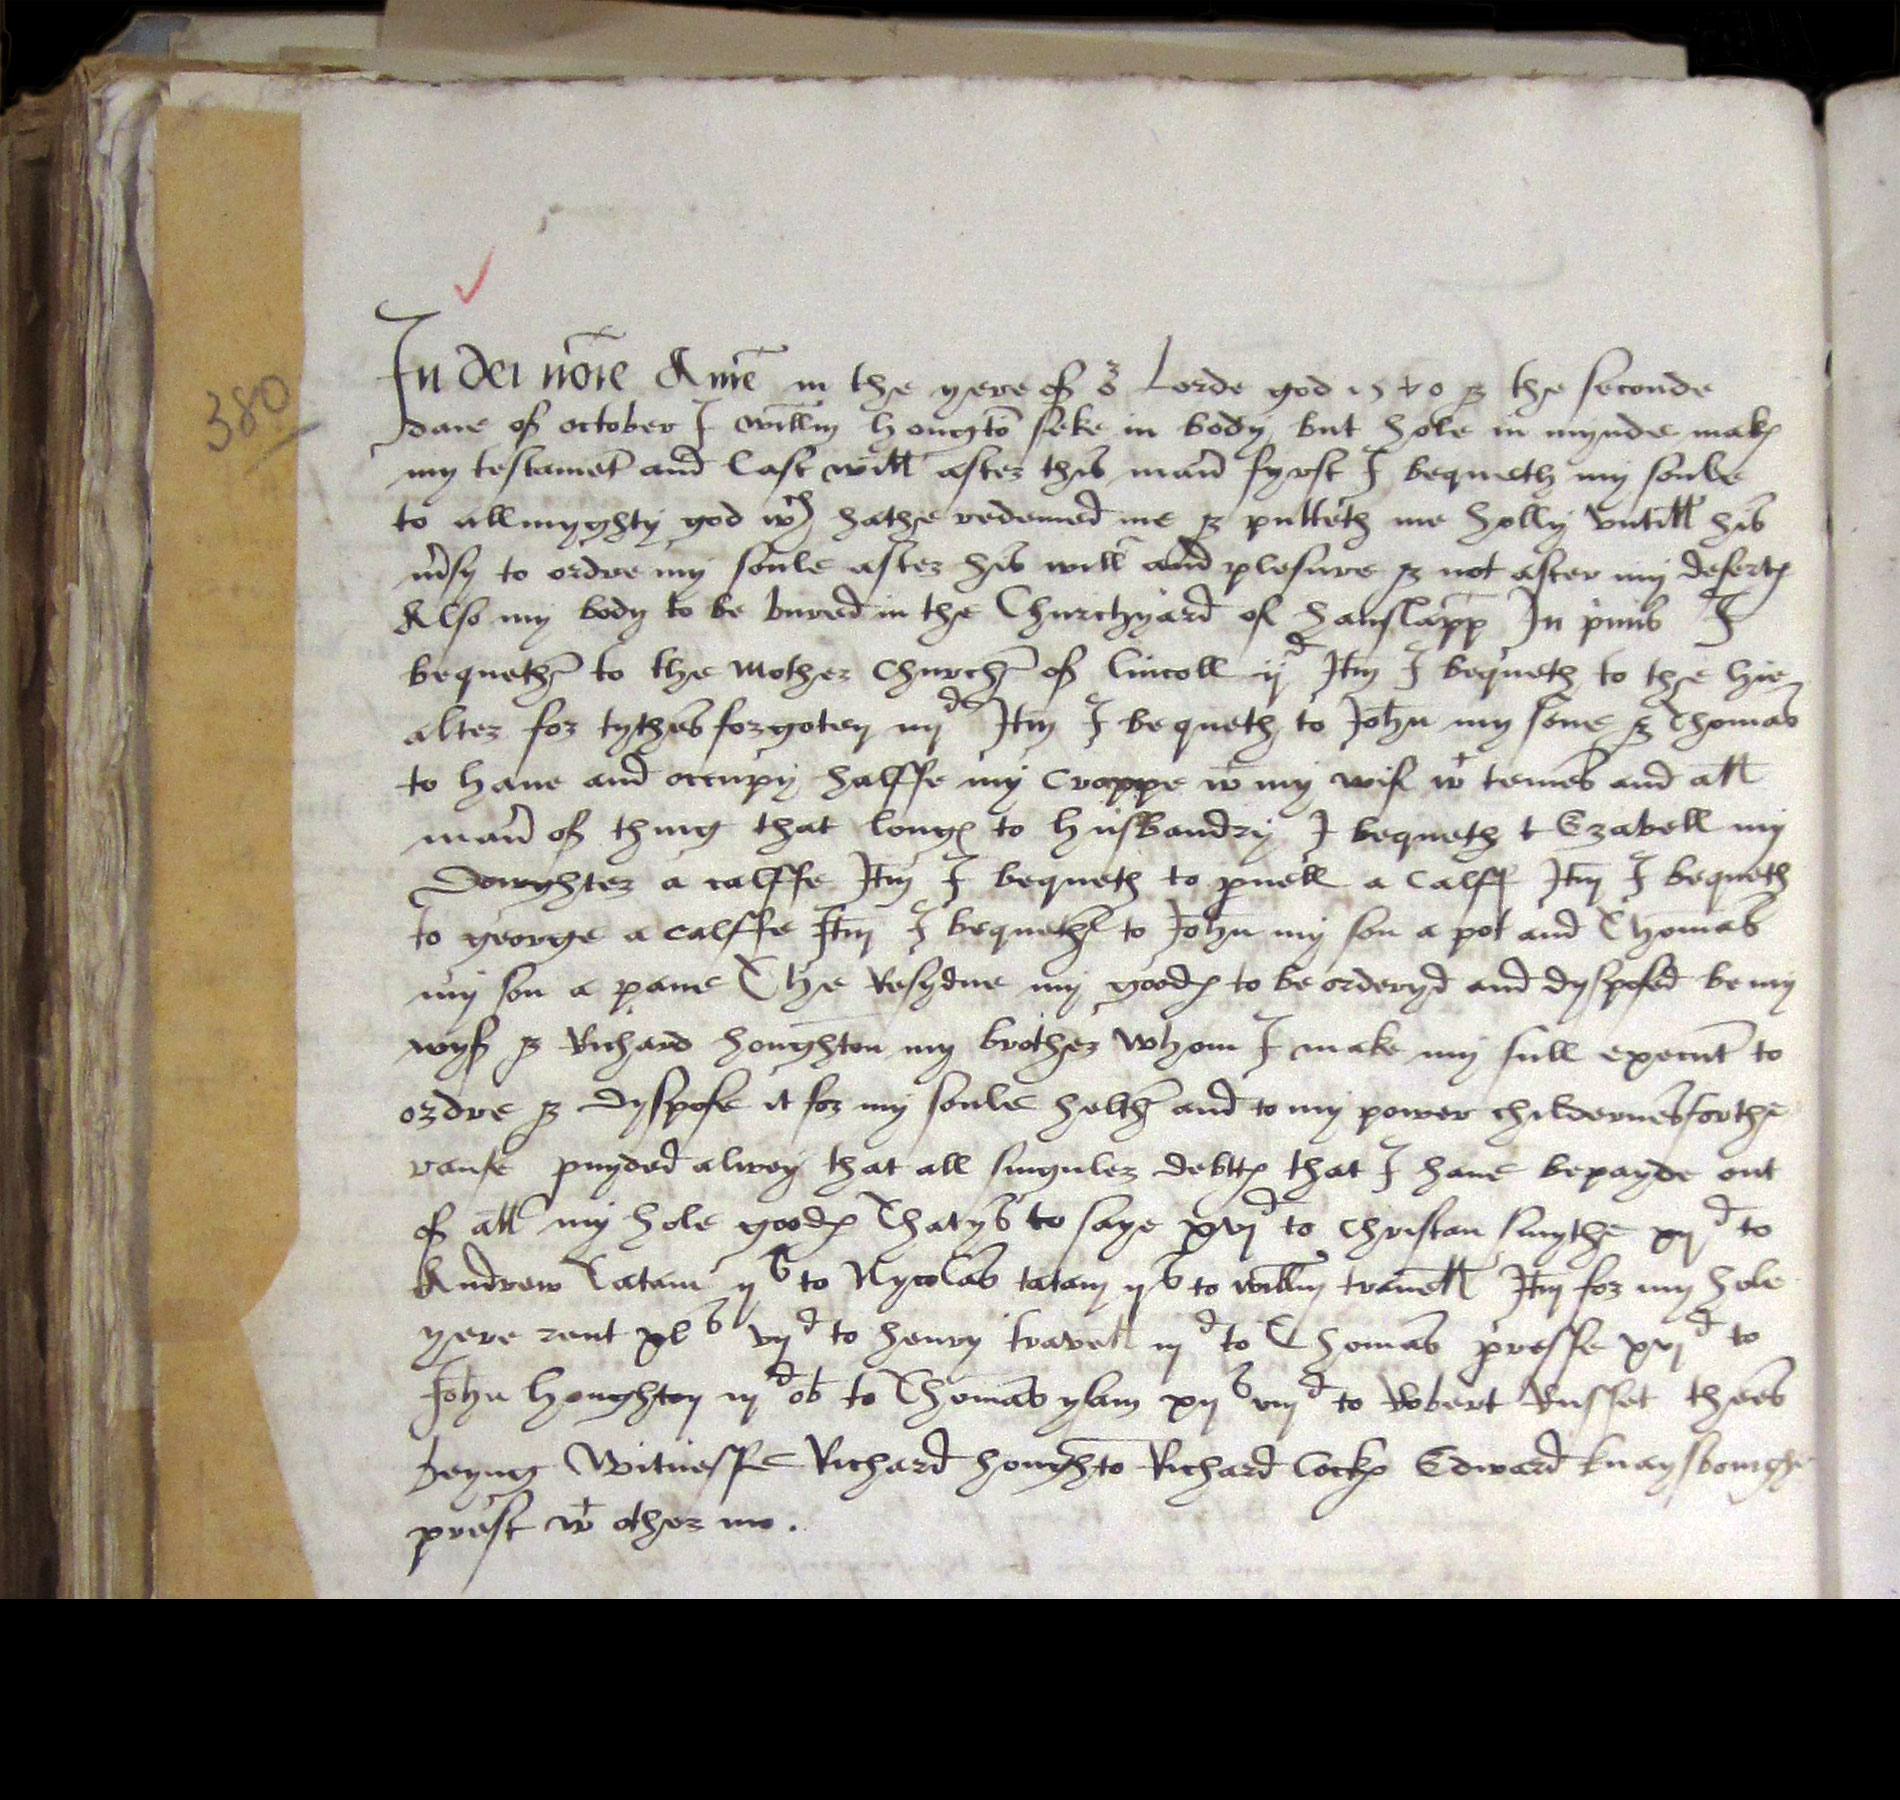 380
In dei nōie Amē in the yere of oʳ Lorde god 1540 & the seconde
daie of october I willm̄ hougtō seke in body but hole in mynde make
my testamēt and last will after this man̄ fyrst I bequeth my soule
to allmyghty god wᶜʰ hathe redemed me & putteth me holly vntill his
m̄sy to ordre my soule after his will and plesure & not after my deserte
Also my body to be bured in the Churchyard of hanslapp In p̄mis I
bequeth to the mother church of lincoll ijᵈ Itm̄ I bequeth to the hie
alter for tythes forgoten iijᵈ Itm̄ I bequeth to John my sone & Thomas
to haue and occupy halffe my croppe wᵗ my wif wᵗ temes and all
man̄ of thing that longe to husbandry I bequeth t Ezabell my
Dowghter a calffe Itm̄ I bequeth to p̄nell a calff Itm̄ I bequeth
to george a calffe Itm̄ I bequeth to John my son a pot and Thomas
my son a pane The Resydue my goode to be orderyd and dysposed be my
wyf & Richard houghton my brother whom I make my full execut̄ to
ordre & dyspose it for my soule helth and to my power childernes forthe
ranse p̄uyded alwey that all singuler dette that I haue be payde out
of all my hole goode That ys to saye xvjᵈ to christan smythe xijᵈ to
Andrew Tatam ijˢ to Nycolas tatam ijˢ to willm̄ trauell Itm̄ for my hole
yere rent xlˢ vijᵈ to henry travell iijᵈ to Thomas presse xvjᵈ to
John houghton iijᵈ ob to Thomas ylam xijˢ viijᵈ to Robert Russet thees
beyng Witnesse Richard houghtō Richard locke Edward knaysbourghe
prest wᵗ other mo.